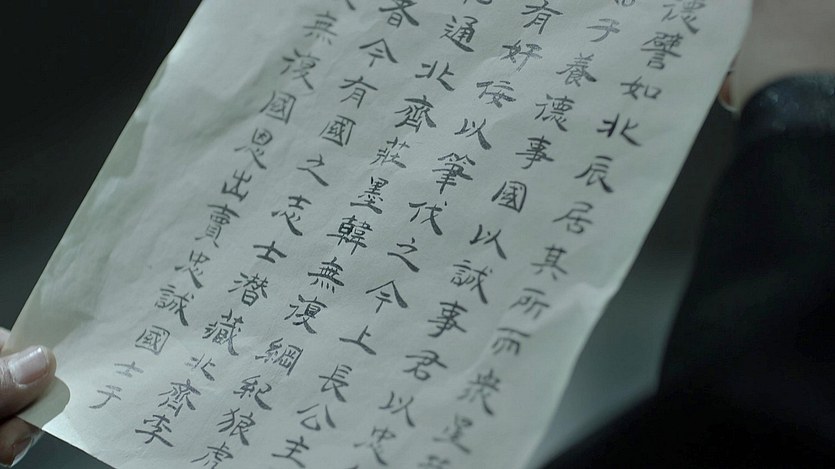 德譬如北辰居其所而衆星
子養德事國以誠事君以忠
有奸佞以筆伐之今上長公主
通北齊莊墨韓無復綱紀狼虎
者今有國之志士潜藏北齊李
無復國恩出賣忠誠國士于